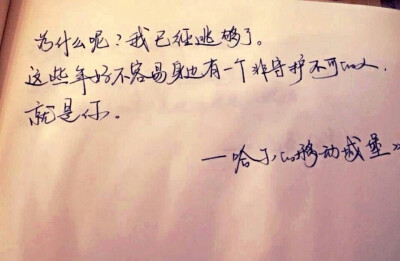 为什么呢？我已经逃够了。
这些年好不容易身边有一个非守护不可的人，
就是你。
—哈尔的移动城堡》